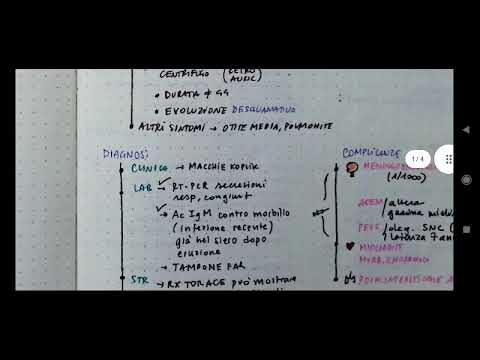 CENTRIFUGO (RETRO
AURIC)
• DURATA ≠ GG
• EVOLUZIONE DESQUAMATIVO
• ALTRI SINTOMI → OTITE MEDIA, POLMONITE
DIAGNOSI
CLINICO → MACCHIE KOPLIK
LAB → RT-PCR secrezioni
resp, congiunt
→ Ac IgM contro morbillo
(infezione recente)
già nel siero dopo
eruzione
→ TAMPONE FAR
STR → RX TORACE può mostrare
COMPLICANZE
1/4
(1/1000)
ADEM/
PESS/
SNC
latenza 7 ann
♥ MIOCARDITE